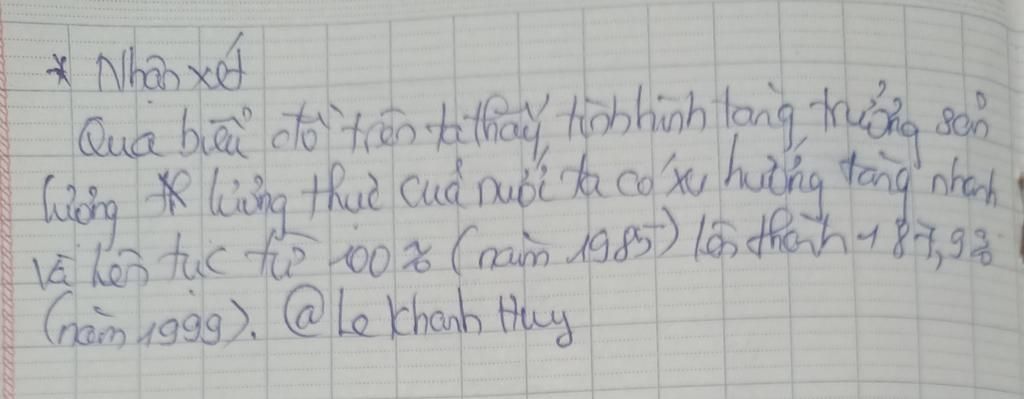 * Nhận xét
Qua biểu đồ trên ta thấy, tình hình tăng trưởng sản
lượng lương thực của nước ta có xu hướng tăng nhanh
và liên tục từ 100% (năm 1985) lên thành 187,9%
(năm 1999). @Le Khanh Huy